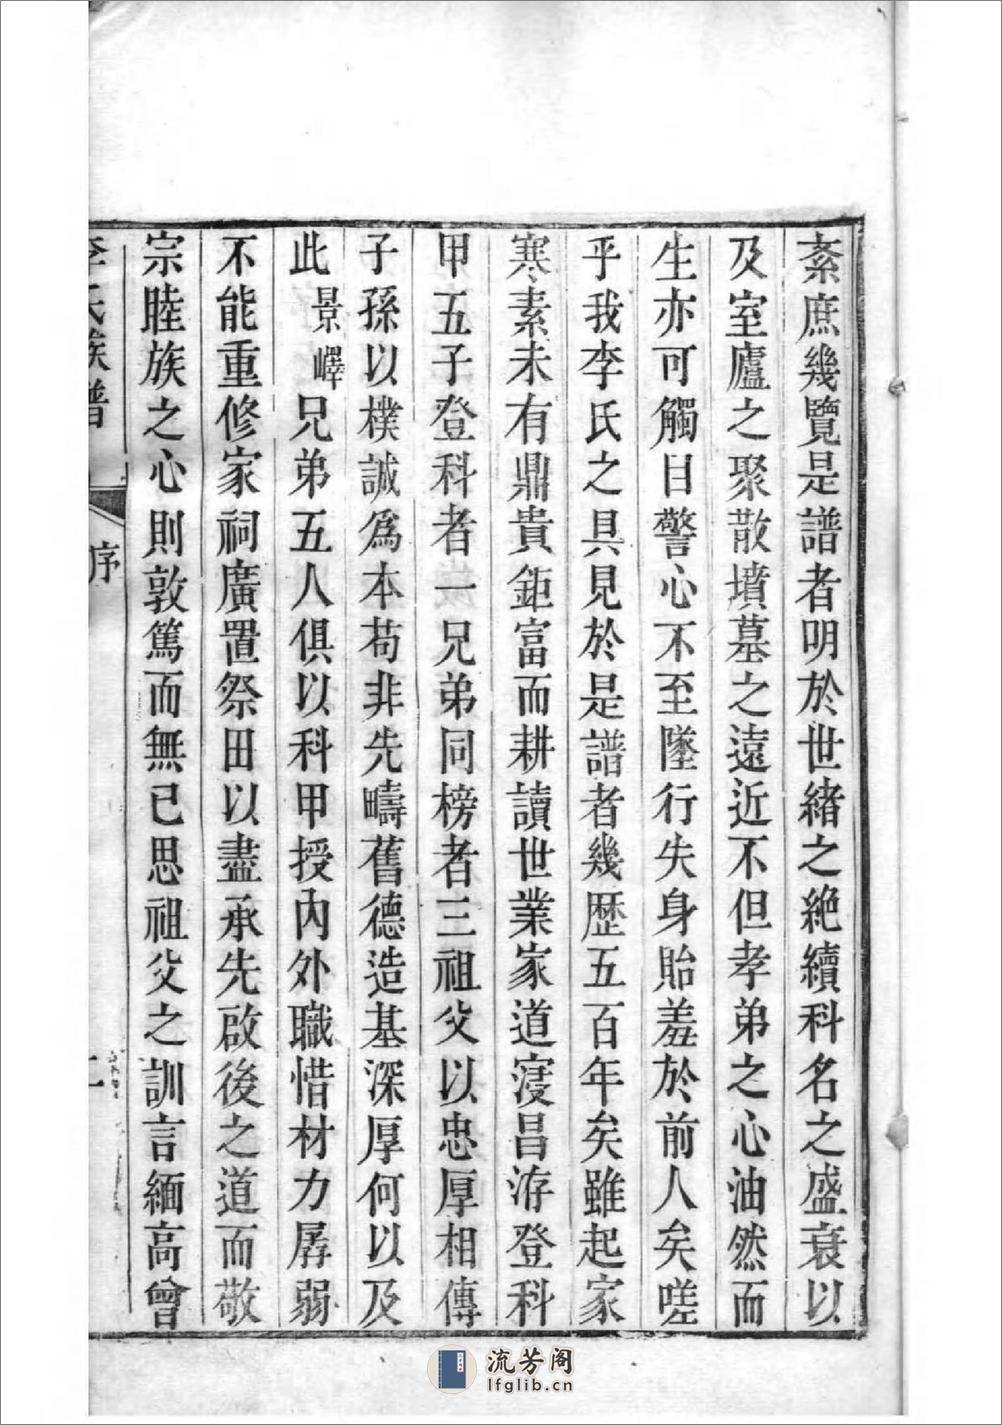 紊庶幾覽是譜者明於世緒之絶續科名之盛衰以
及室廬之聚散墳墓之遠近不但孝弟之心油然而
生亦可觸目警心不至墜行失身貽羞於前人矣嗟
乎我李氏之具見於是譜者幾歷五百年矣雖起家
寒素未有鼎貴鉅富而耕讀世業家道寖昌洊登科
甲五子登科者一兄弟同榜者三祖父以忠厚相傳
子孫以樸誠爲本苟非先疇舊德造基深厚何以及
此景嶧兄弟五人俱以科甲授內外職惜材力孱弱
不能重修家祠廣置祭田以盡承先啟後之道而敬
宗睦族之心則敦篤而無已思祖父之訓言緬高曾
李氏族譜
序
二
流芳阁
lfglib.cn